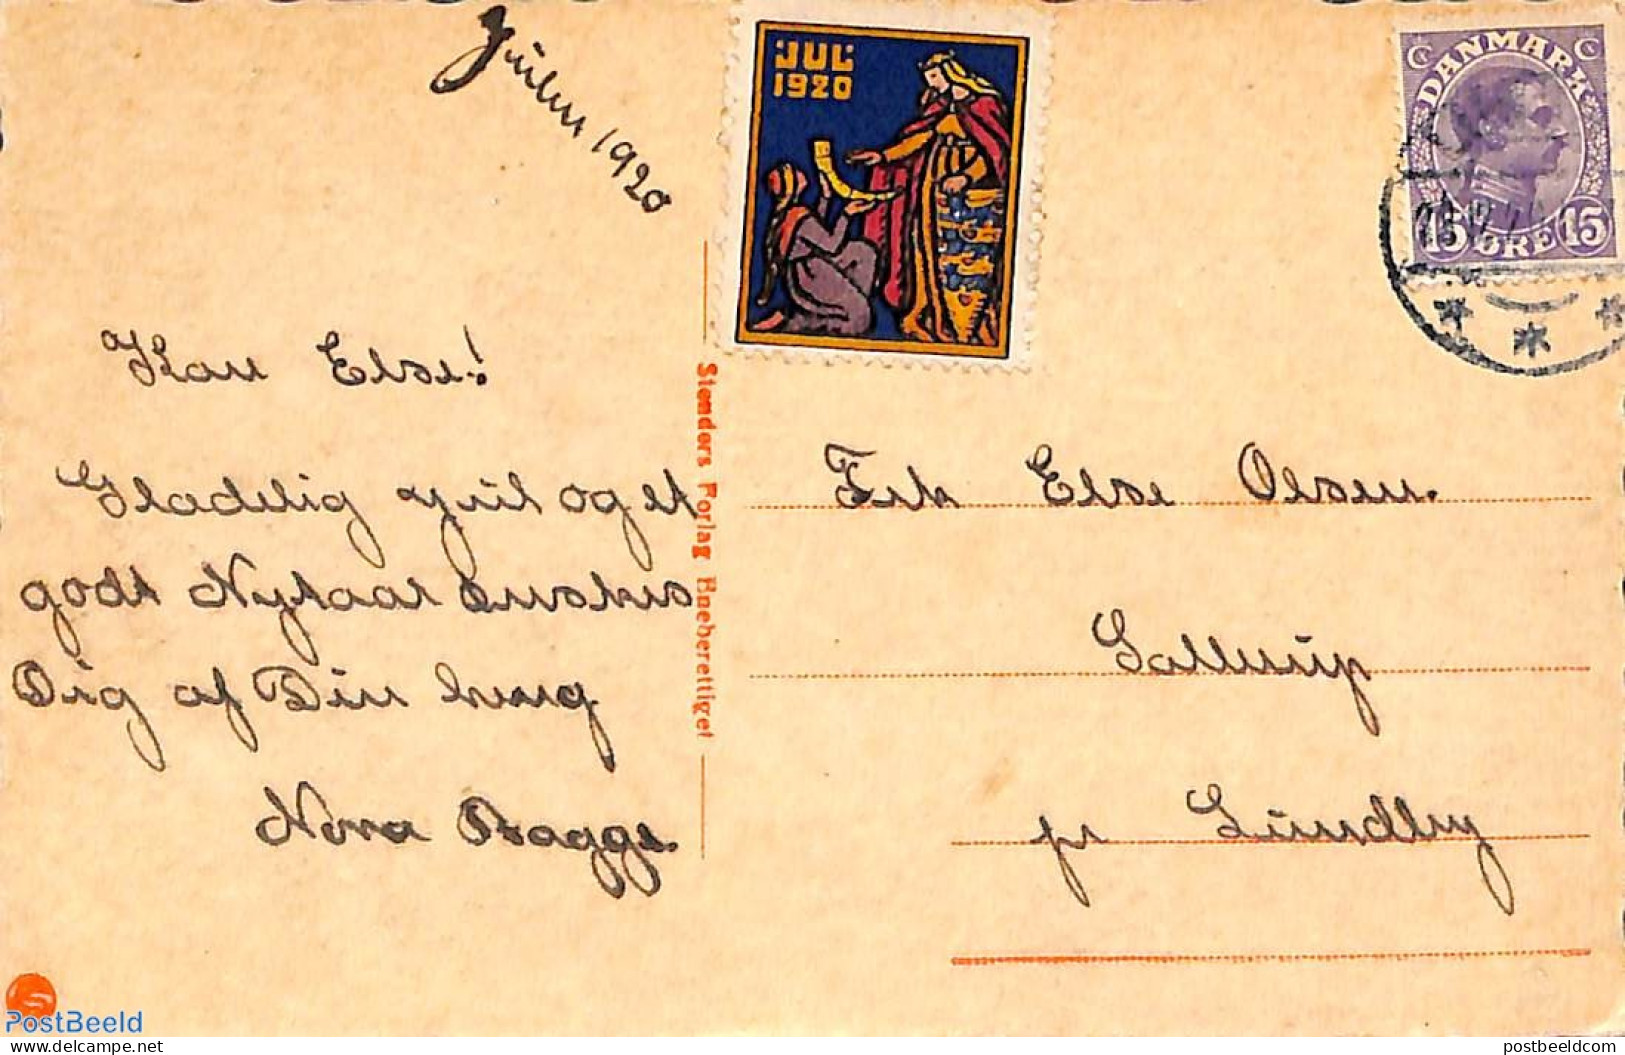 Julen 1920
JUL
1920
DANMARK
15 ØRE 15
Kære Else!
Glædelig Jul og et
godt Nytaar ønskes
Dig af Din
Nora Bagge.
Stenders Forlag Eneberettiget
Frk Else Olsen.
Sallerup
pr Lundby
PostBeeld
www.delcampe.net postbeeldcom